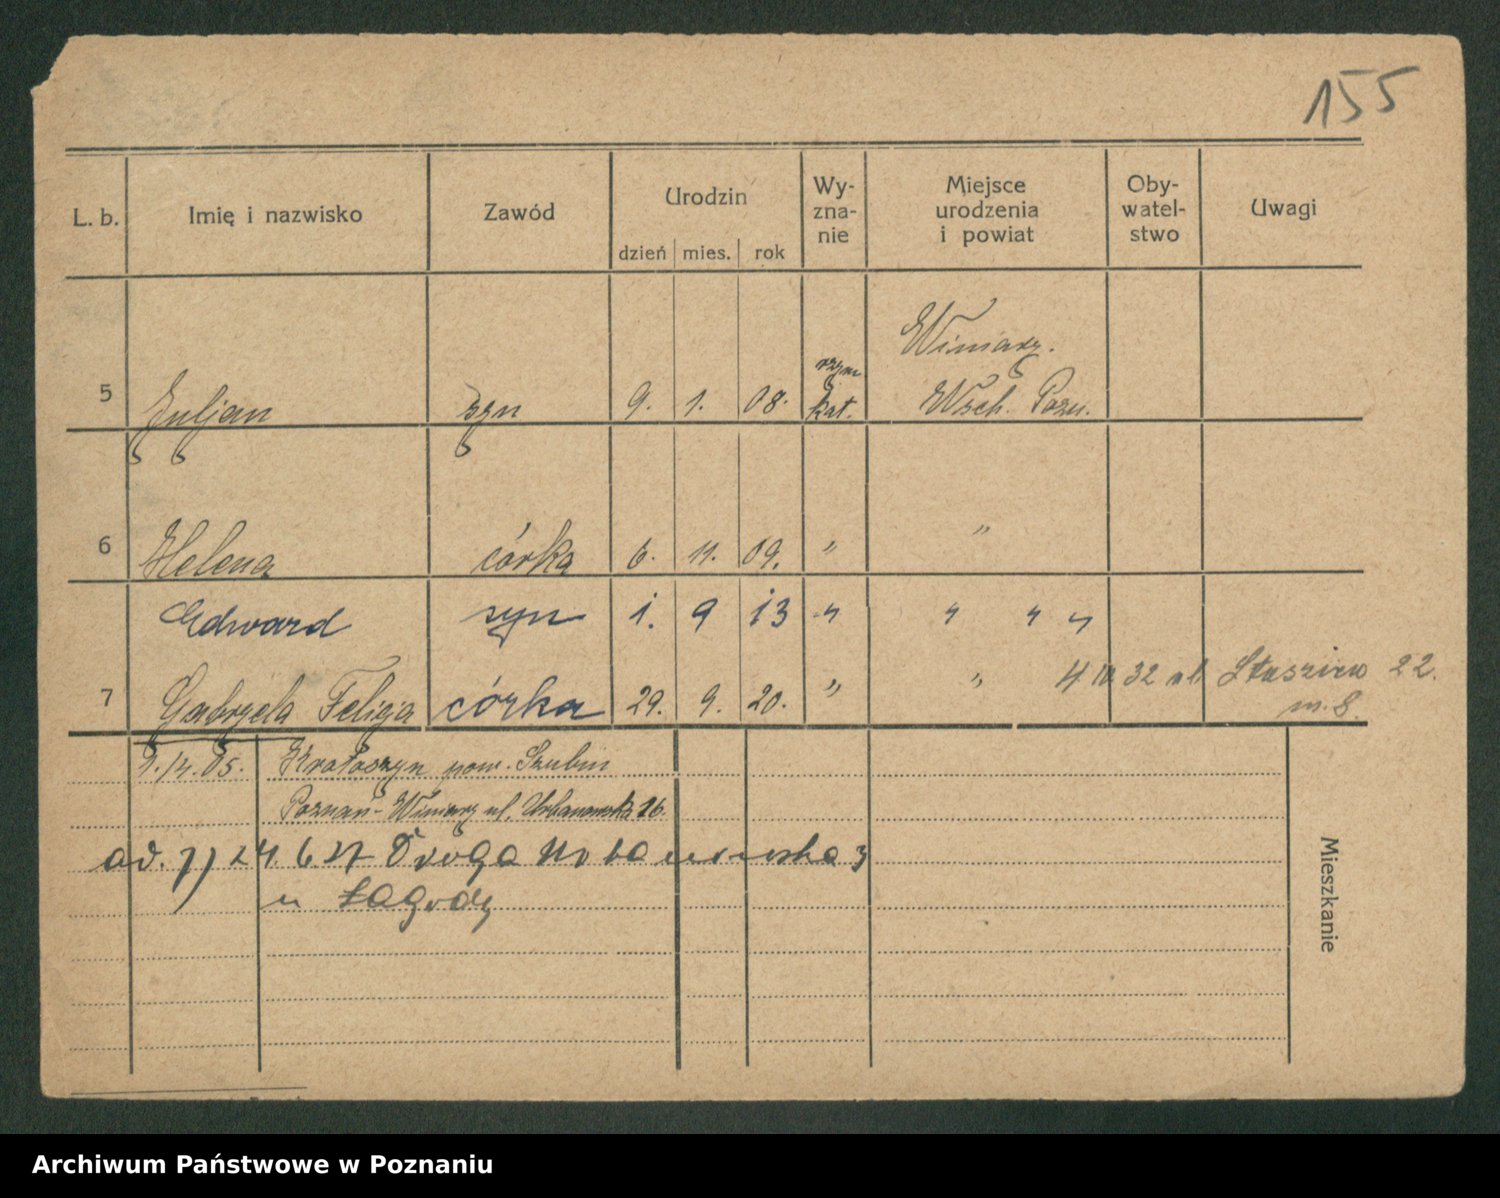 155
L. b. Imię i nazwisko Zawód Urodzin Wy-zna-nie Miejsce urodzenia i powiat Oby-watel-stwo Uwagi
dzień mies. rok
Winiary.
rzym
5 Juljan syn 9. 1. 08. kat. Wsch. Pozn.
6 Helena córka 6. 11. 09. " "
Edward syn 1. 9 13 " " " "
7 Gabryela Felicja córka 29. 9. 20. " " 4 III 32 ul. Staszica 22.
m. 8.
05. pow. Szubin
Poznań-Winiary ul. Urbanowska 26.
od. 7) 24. 6 27 Droga Urbanowska 3
u Łagody
Mieszkanie
Archiwum Państwowe w Poznaniu